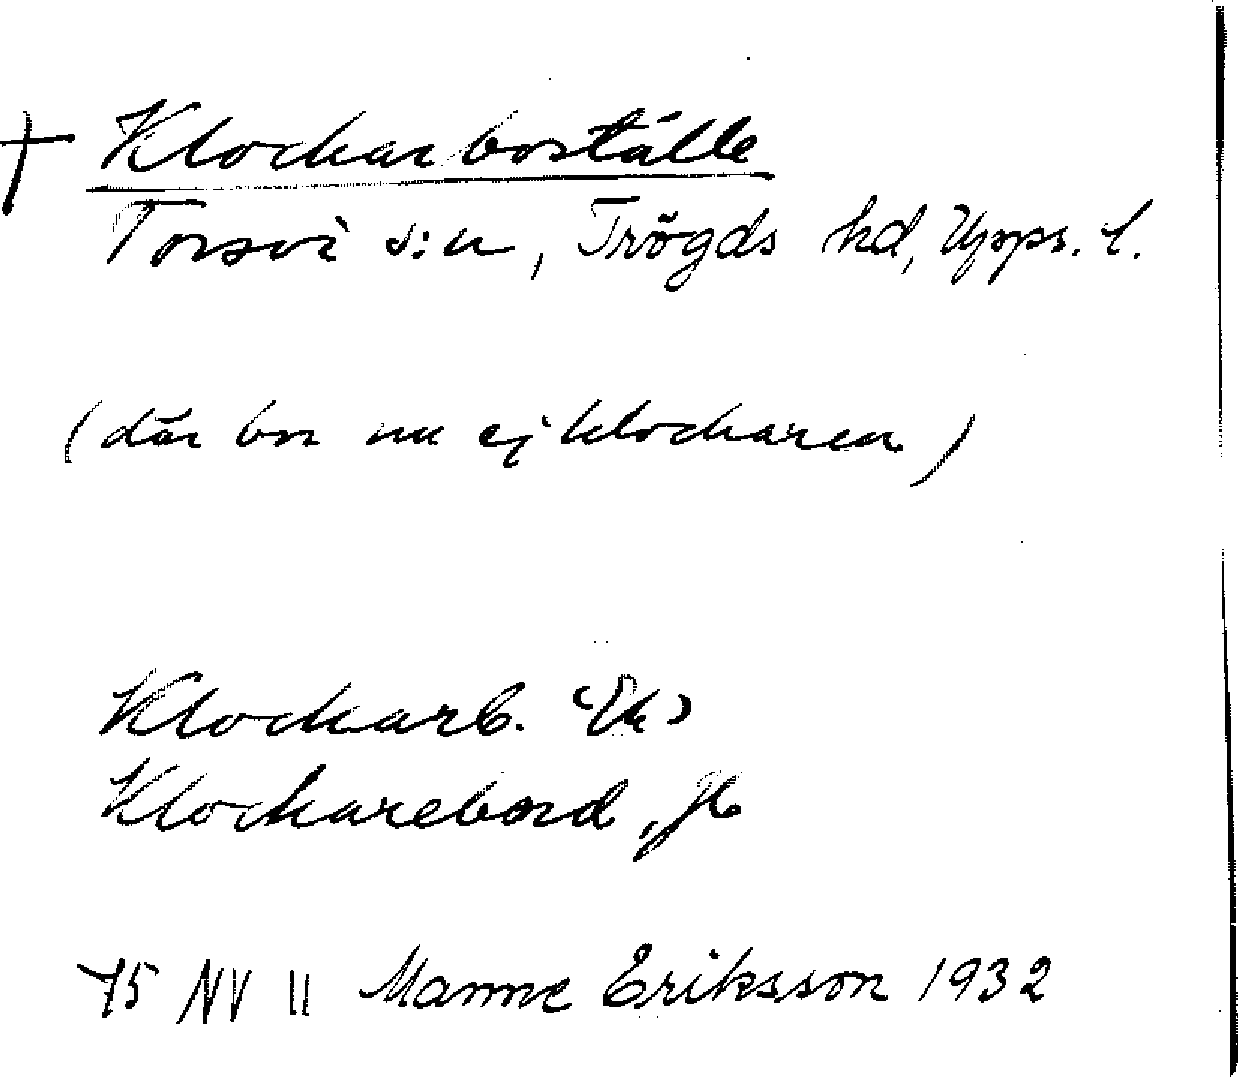 † Klockarboställe
Torsvi s:n, Trögds hd, Upps. l.
(där bor nu ej klockaren)
Klockarb. Ek
Klockarebord, Jb
75 NV II Manne Eriksson 1932